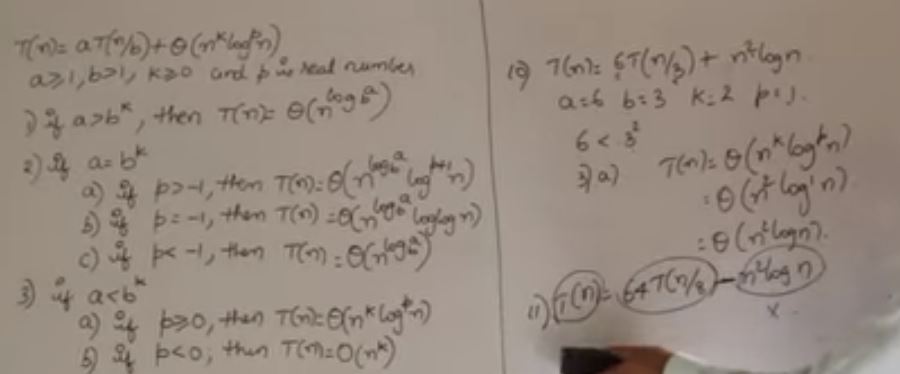 T(n) = aT(n/b) + θ(n^k log^p n)
a≥1, b>1, k≥0 and p is real number
1) if a>b^k, then T(n) = θ(n^(log_b a))
2) if a=b^k
a) if p>-1, then T(n) = θ(n^(log_b a) log^(p+1) n)
b) if p=-1, then T(n) = θ(n^(log_b a) loglog n)
c) if p<-1, then T(n) = θ(n^(log_b a))
3) if a<b^k
a) if p≥0, then T(n) = θ(n^k log^p n)
b) if p<0, then T(n) = O(n^k)
10) T(n) = 6T(n/3) + n² log n
a=6 b=3 k=2 p=1.
6 < 3²
3) a) T(n) = θ(n^k log^p n)
= θ(n² log¹ n)
= θ(n² log n).
11) T(n) = 64T(n/8) - n² log n
x